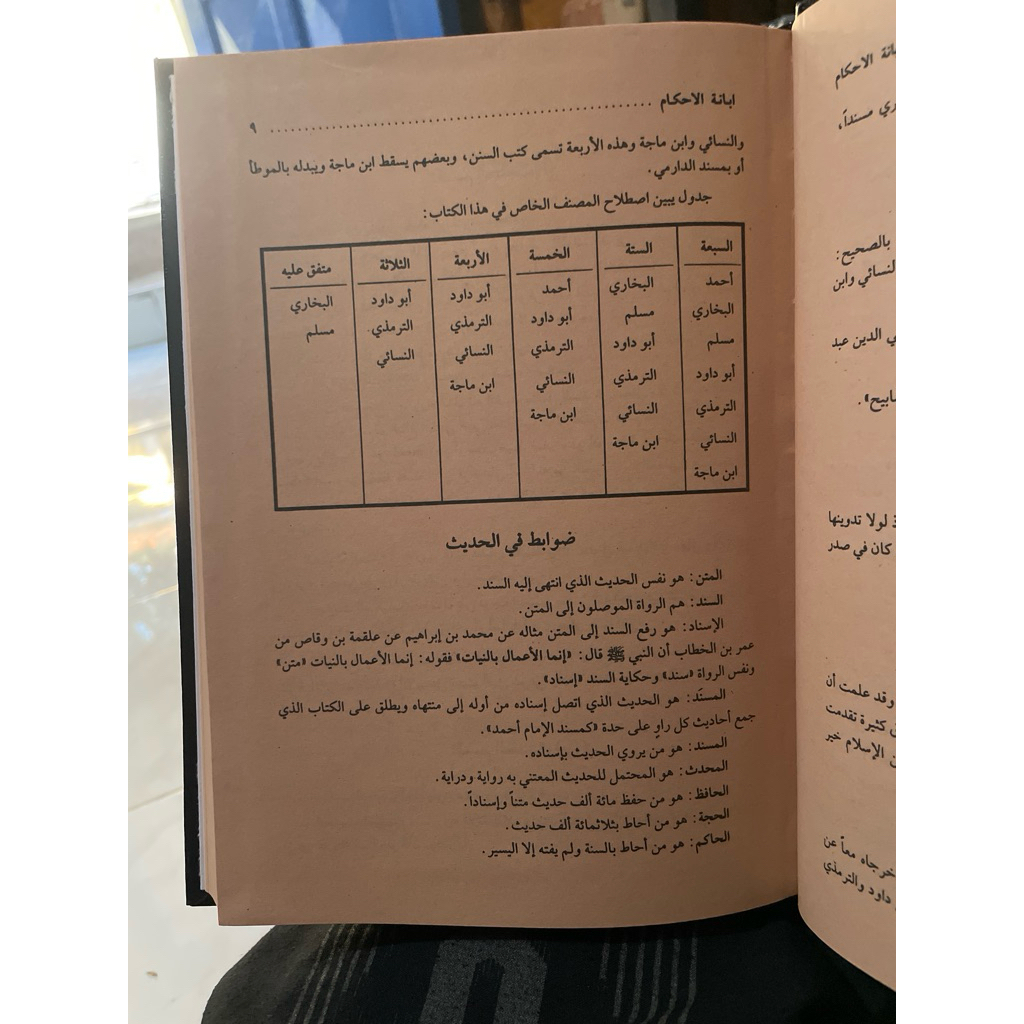 ابانة الاحكام ........................................................ ٩
والنسائي وابن ماجة وهذه الأربعة تسمى كتب السنن، وبعضهم يسقط ابن ماجة ويبدله بالموطأ
أو بمسند الدارمي.
جدول يبين اصطلاح المصنف الخاص في هذا الكتاب:
السبعة الستة الخمسة الأربعة الثلاثة متفق عليه
أحمد البخاري أحمد أبو داود أبو داود البخاري
البخاري مسلم أبو داود الترمذي الترمذي مسلم
مسلم أبو داود الترمذي النسائي النسائي
أبو داود الترمذي النسائي ابن ماجة
الترمذي النسائي ابن ماجة
النسائي ابن ماجة
ابن ماجة
ضوابط في الحديث
المتن: هو نفس الحديث الذي انتهى إليه السند.
السند: هم الرواة الموصلون إلى المتن.
الإسناد: هو رفع السند إلى المتن مثاله عن محمد بن إبراهيم عن علقمة بن وقاص من
عمر بن الخطاب أن النبي ﷺ قال: «إنما الأعمال بالنيات» فقوله: إنما الأعمال بالنيات «متن»
ونفس الرواة «سند» وحكاية السند «إسناد».
المسنَد: هو الحديث الذي اتصل إسناده من أوله إلى منتهاه ويطلق على الكتاب الذي
جمع أحاديث كل راوٍ على حدة «كمسند الإمام أحمد».
المسند: هو من يروي الحديث بإسناده.
المحدث: هو المحتمل للحديث المعتني به رواية ودراية.
الحافظ: هو من حفظ مائة ألف حديث متناً وإسناداً.
الحجة: هو من أحاط بثلاثمائة ألف حديث.
الحاكم: هو من أحاط بالسنة ولم يفته إلا اليسير.
الاحكام
مسنداً،
بالصحيح:
النسائي وابن
الدين عبد
لولا تدوينها
كان في صدر
وقد علمت أن
كثيرة تقدمت
الإسلام خير
معاً عن
داود والترمذي